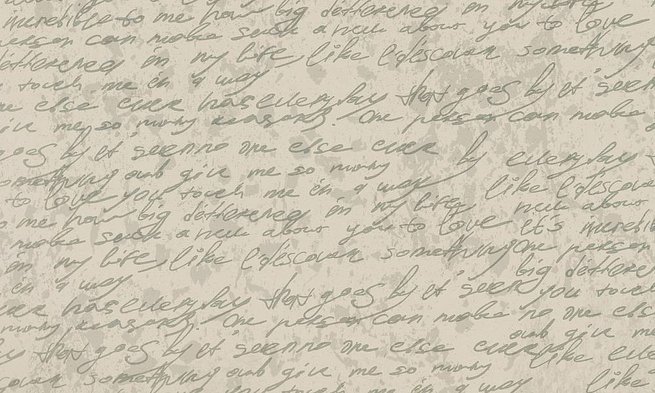 incredible to me how big defference in my life
person can make such a new about you to love
defference in my life, like I discover something
touch me in a way
one else ever has every day that goes by it seem
give me so many reasons. One person can make
goes by it seem no one else ever by every day
something and give me so many like I discover
to love you touch me in a way
to me how big defference in my life new about
make such a new about you to love it's incredible
in my life, like I discover something One person
in a way big defference
ever has every day that goes by it seem you touch
many reasons. One person can make no one else
and give me
that goes by it seem no one else ever like
discover something and give me so many
you touch me in a way like